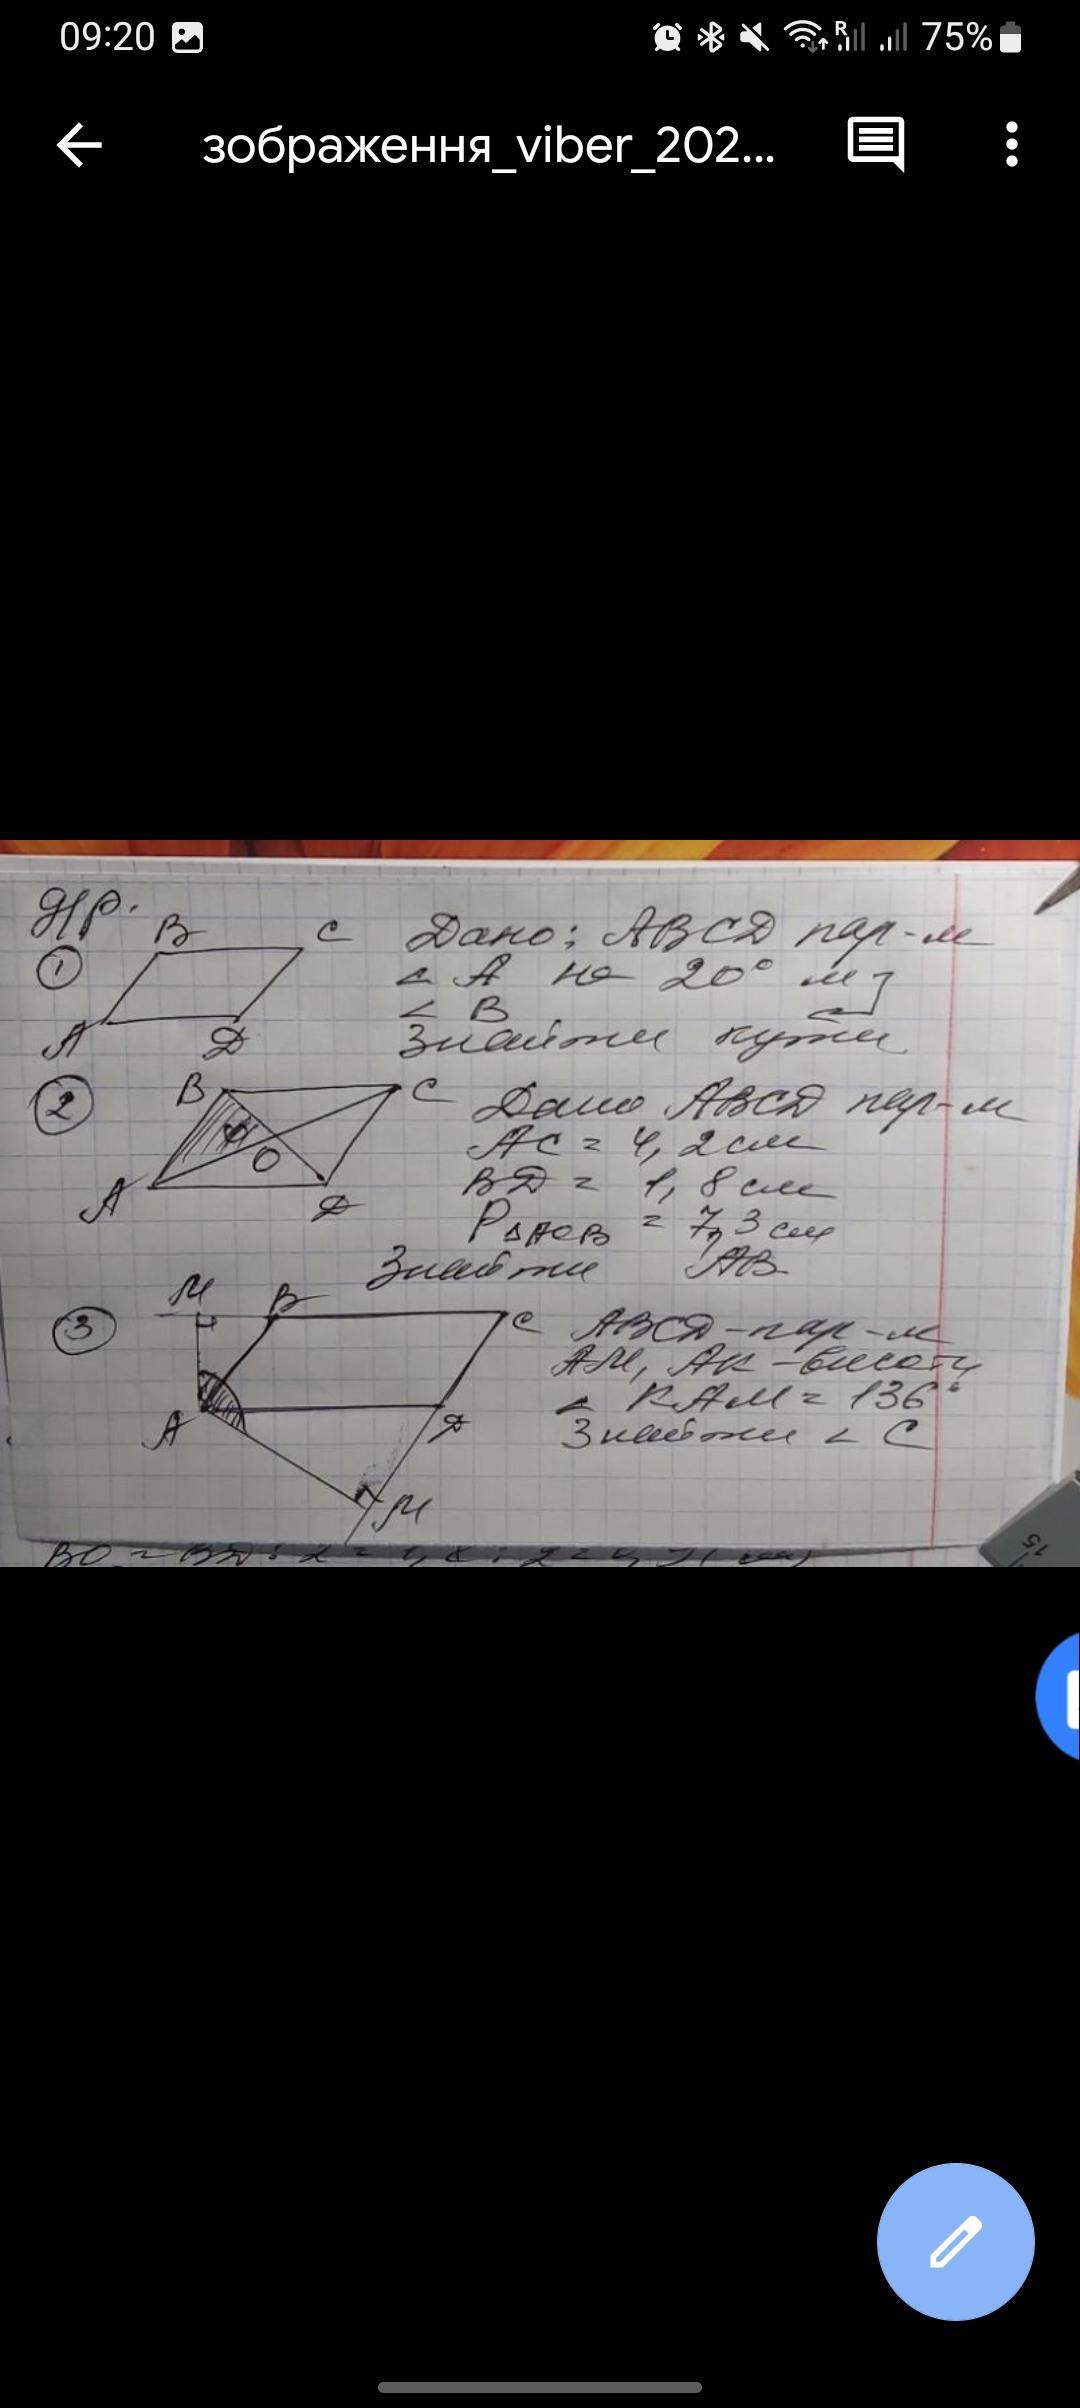 09:20 R 75%
зображення_viber_202...
Д/р.
① B C A D
Дано: ABCD пар-м
< A на 20° м
< B
Знайти кути
② B C O A D
Дано ABCD пар-м
AC = 4,2 см
BD = 1,8 см
P△AOB = 7,3 см
Знайти AB
③ M B C A D M
ABCD-пар-м
AM, AK - висоти
< KAM = 136°
Знайти < C
15